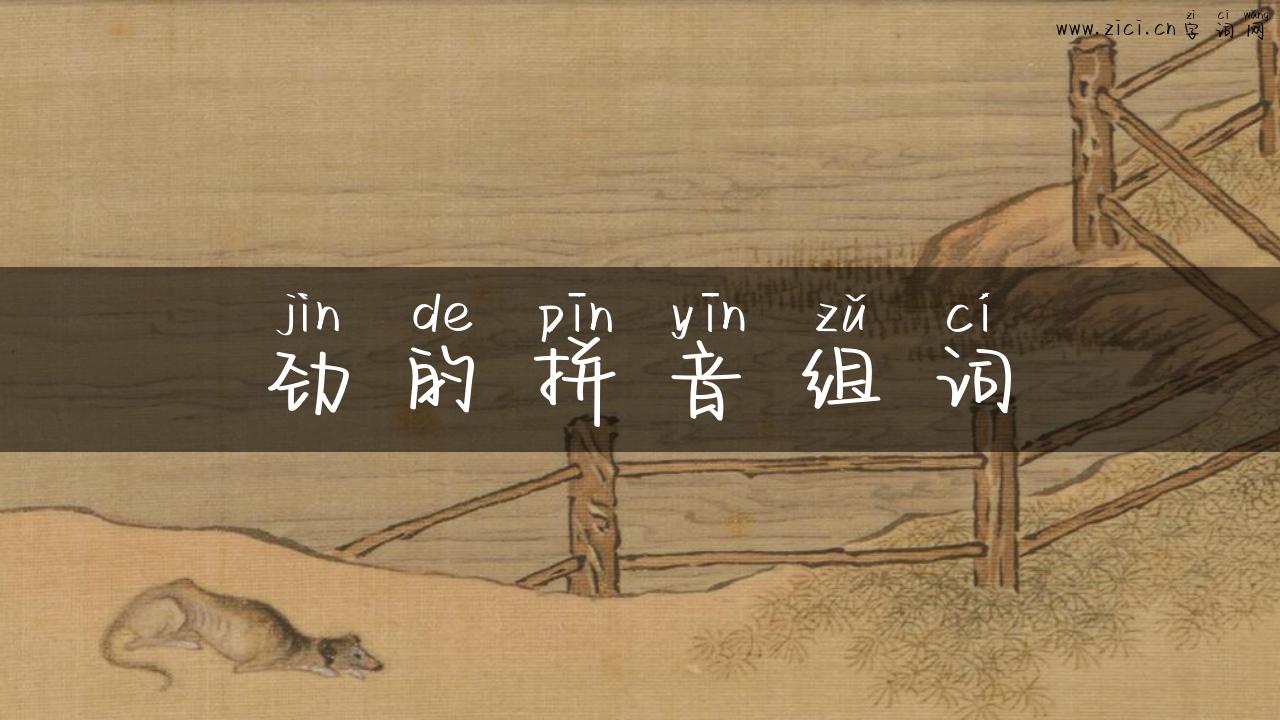 zi ci wang
www.zici.cn 字词网
jìn de pīn yīn zǔ cí
劲的拼音组词